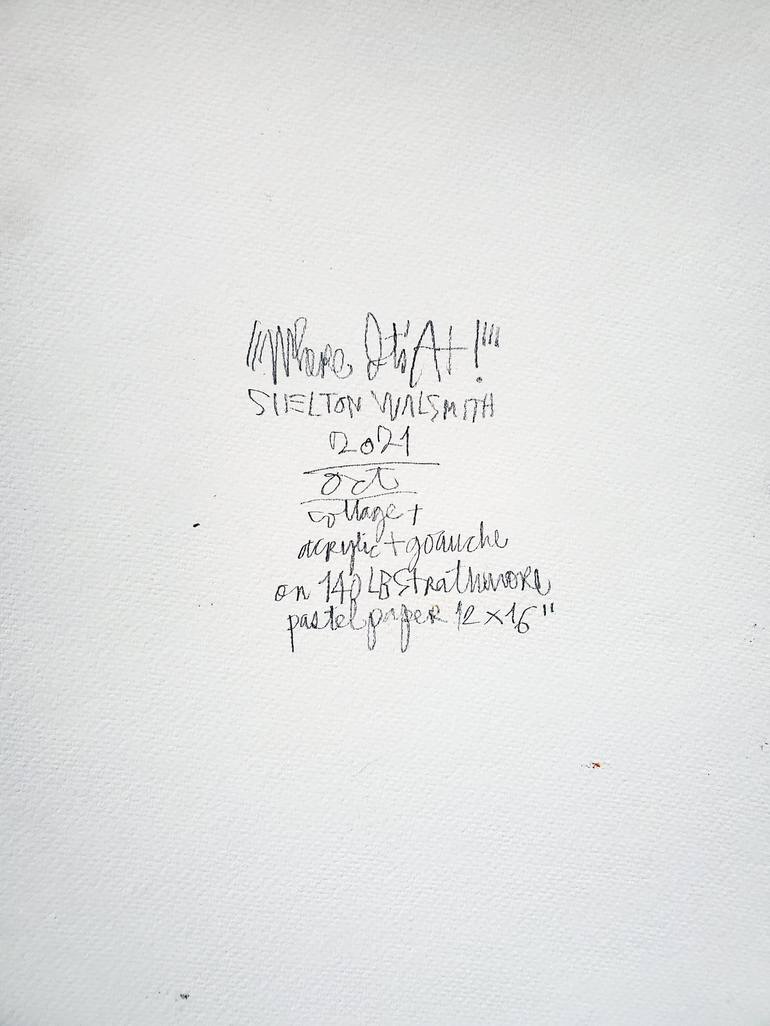 "Where It's At!"
SHELTON WALSMITH
2021
oct
collage +
acrylic + goauche
on 140 LB Strathmore
pastel paper 12 x 16"